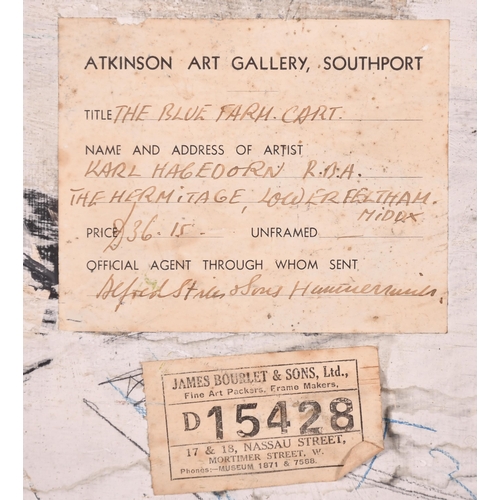 ATKINSON ART GALLERY, SOUTHPORT
TITLE THE BLUE FARM. CART.
NAME AND ADDRESS OF ARTIST
KARL HAGEDORN R.B.A.
THE HERMITAGE, LOWER FELTHAM.
MIDDX
PRICE £36-15- UNFRAMED
OFFICIAL AGENT THROUGH WHOM SENT
Alfred & Sons Hammersmith.
JAMES BOURLET & SONS, Ltd.,
Fine Art Packers, Frame Makers,
D 15428
17 & 18, NASSAU STREET,
MORTIMER STREET, W.
Phones:—MUSEUM 1871 & 7588.